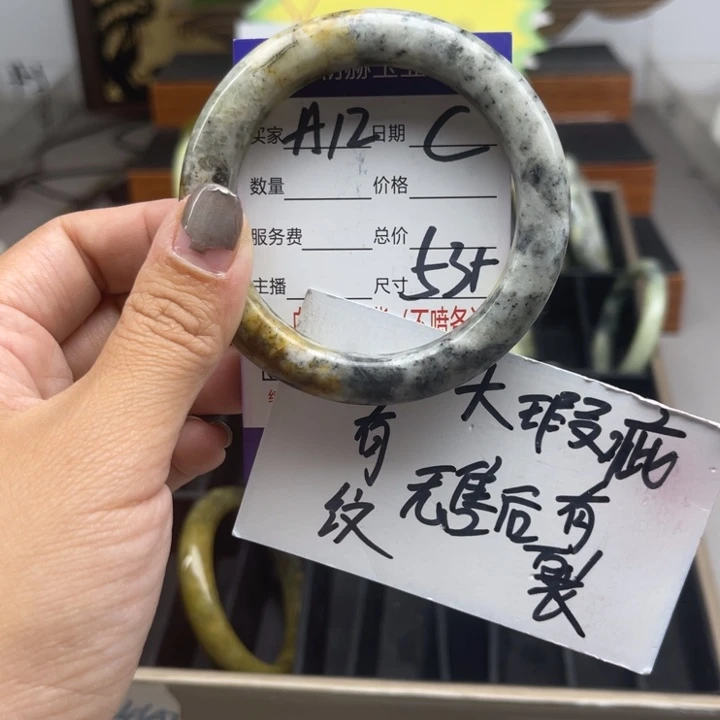 买家 A12 日期 C
数量 价格
服务费 总价
主播 尺寸 53+
(不喷各
大瑕疵
有纹
无售后有裂